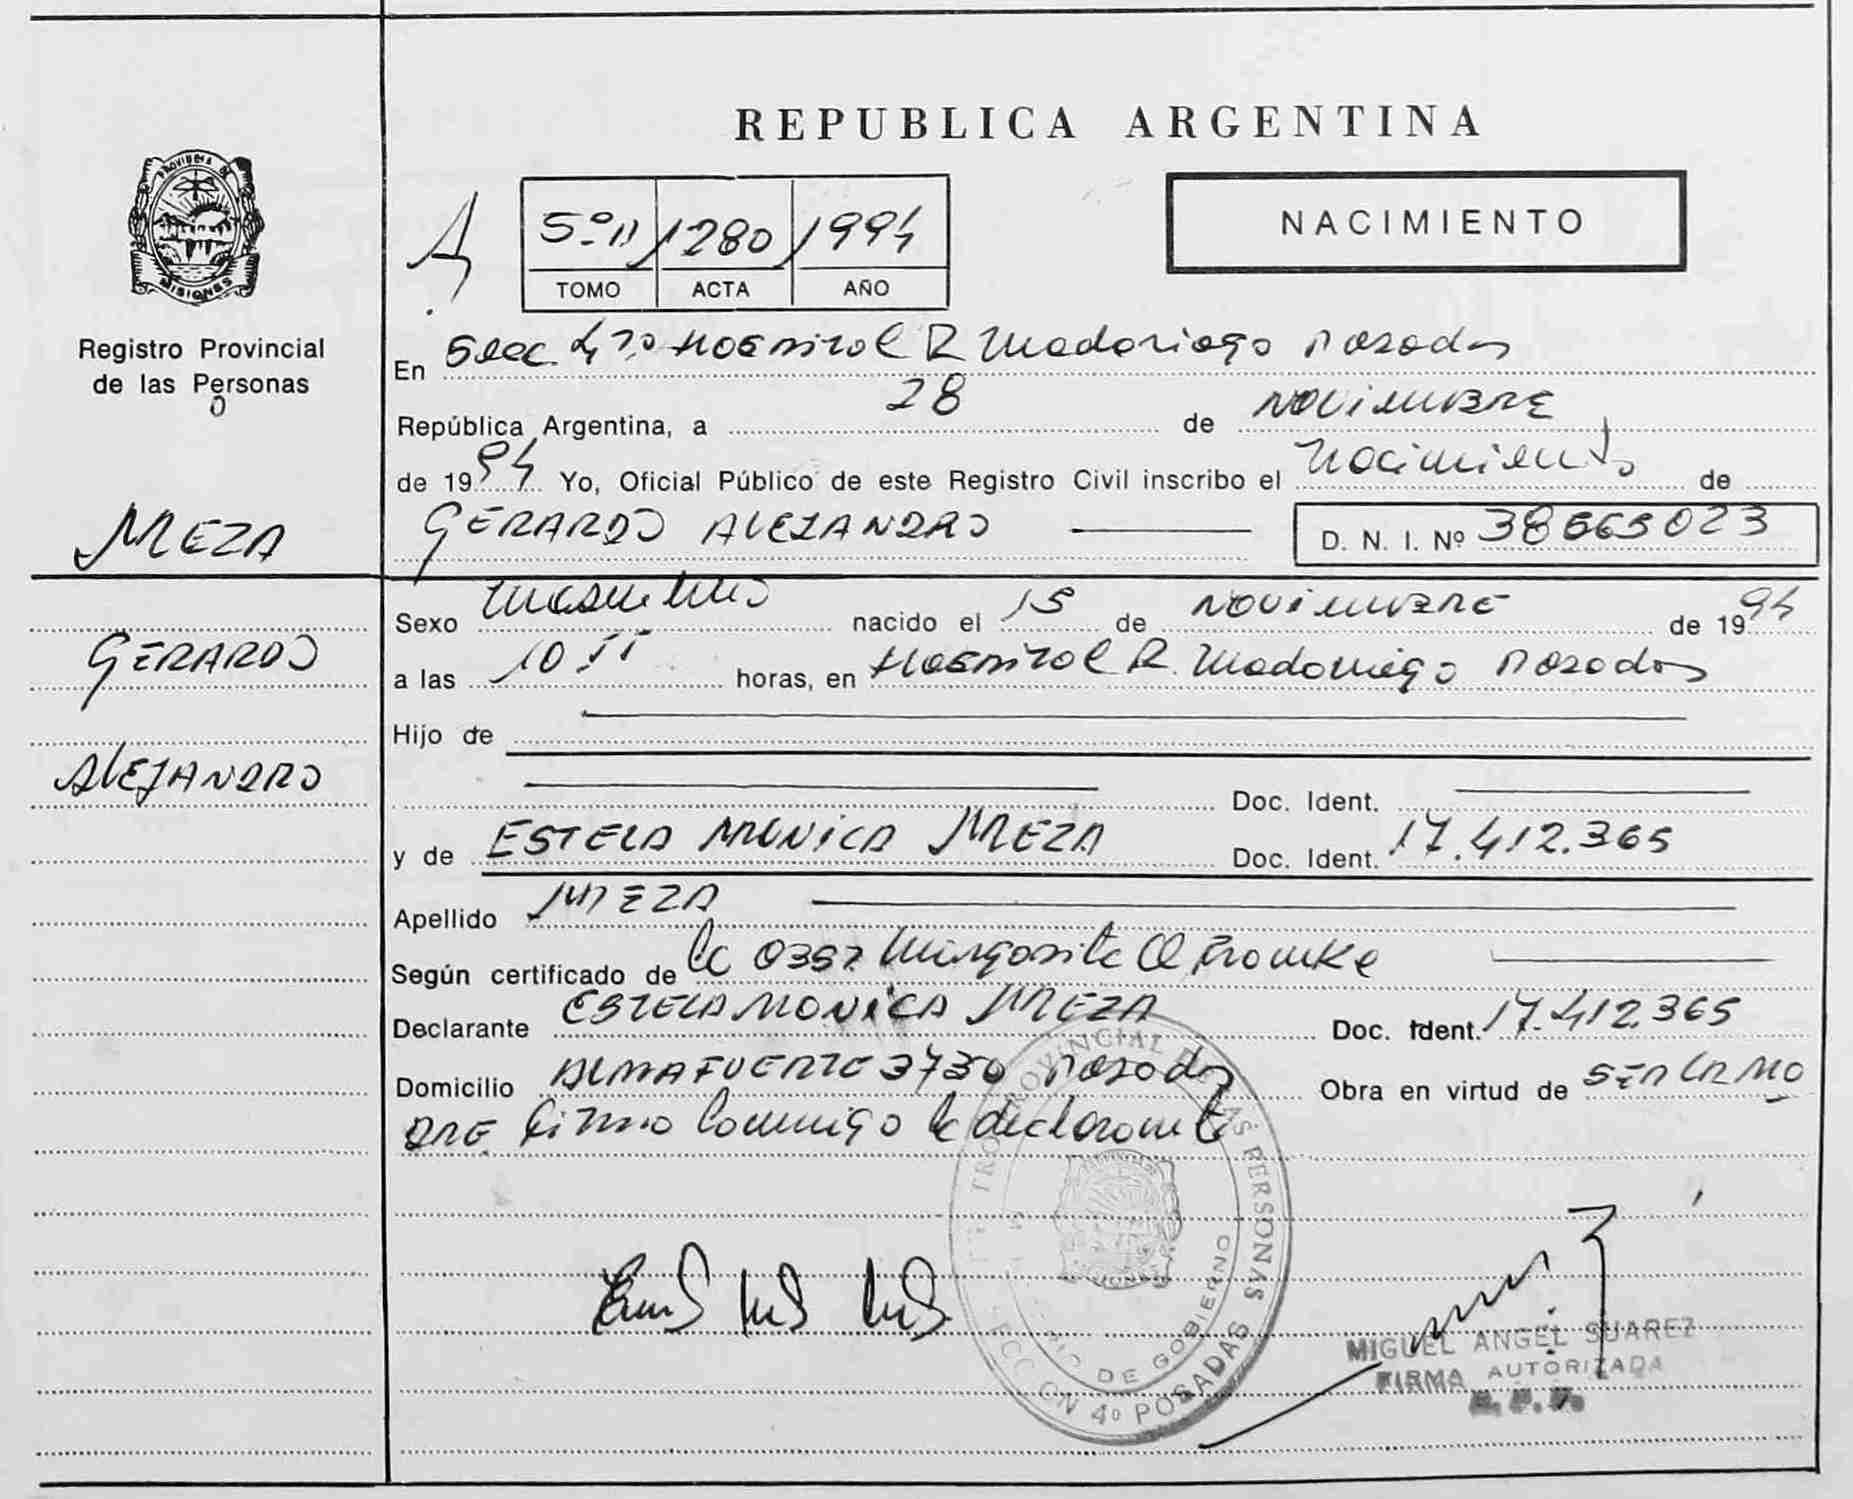 REPUBLICA ARGENTINA
PROVINCIA DE MISIONES
Registro Provincial
de las Personas
NACIMIENTO
5º 1280 1994
TOMO ACTA AÑO
En Secc. 4ª Hospital R Madariaga Posadas
República Argentina, a 28 de NOVIEMBRE
de 1994 Yo, Oficial Público de este Registro Civil inscribo el Nacimiento de
MEZA
GERARDO ALEJANDRO D. N. I. Nº 38565023
GERARDO
ALEJANDRO
Sexo Masculino nacido el 15 de NOVIEMBRE de 1994
a las 10 horas, en Hospital R. Madariaga Posadas
Hijo de
Doc. Ident.
y de ESTELA MONICA MEZA Doc. Ident. 17.412.365
Apellido MEZA
Según certificado de la Margarita
Declarante ESTELA MONICA MEZA Doc. Ident. 17.412.365
Domicilio ALMAFUERTE 3730 Posadas Obra en virtud de SER LA MA
DRE Firmo Conmigo la declarante
PROVINCIAL DE LAS PERSONAS
DE GOBIERNO
4º POSADAS
MIGUEL ANGEL SUAREZ
FIRMA AUTORIZADA